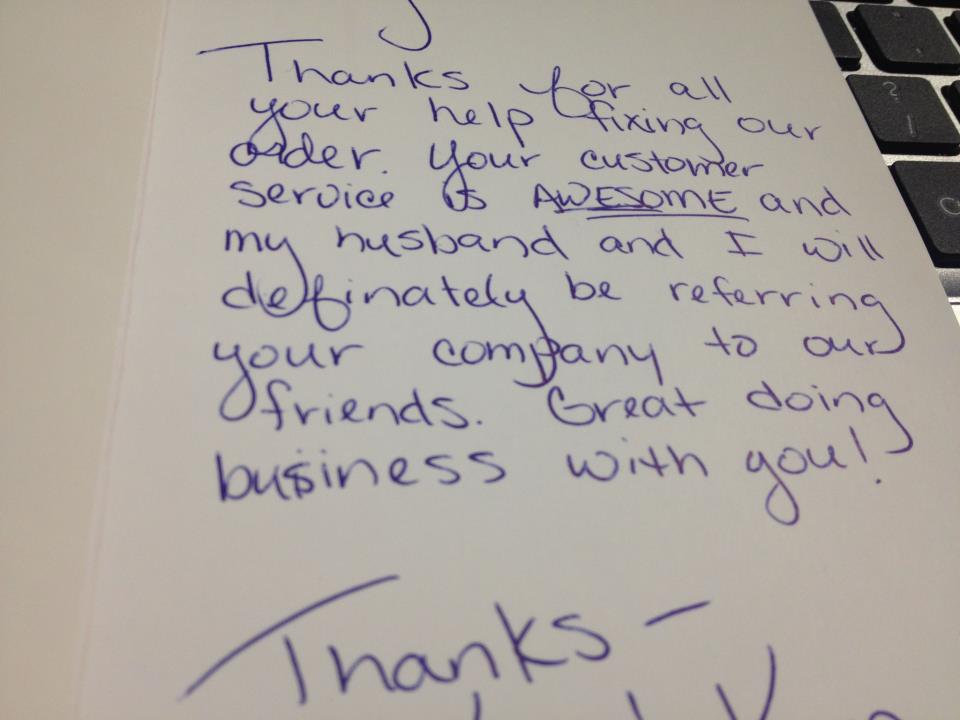 Thanks for all
your help fixing our
order. Your customer
service is AWESOME and
my husband and I will
definately be referring
your company to our
friends. Great doing
business with you!
Thanks-